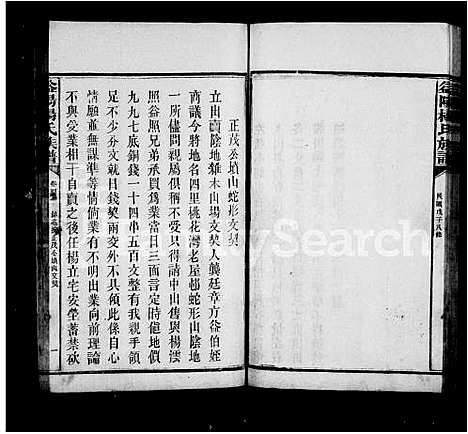 益陽楊氏族譜
民國戊子八修
正茂公墳山蛇形文契
立出賣陰地雜木山場文契人龔廷章方谷伯姪
商議今將地名四里桃花灣老屋邨蛇形山陰地
一所儘問親屬俱稱不受只得請中出售與楊澐
照谷照兄弟承買爲業當日三面言定時値地價
九九七底銅錢一十四串五百文整有我親手領
足不少分文就日錢契兩交外不具領此係自心
情願並無謀準等情倘業有不明出業向前理論
不與受業相干自賣之後任楊立宅安塋蓄禁砍
益陽楊氏族譜
卷
一
FamilySearch